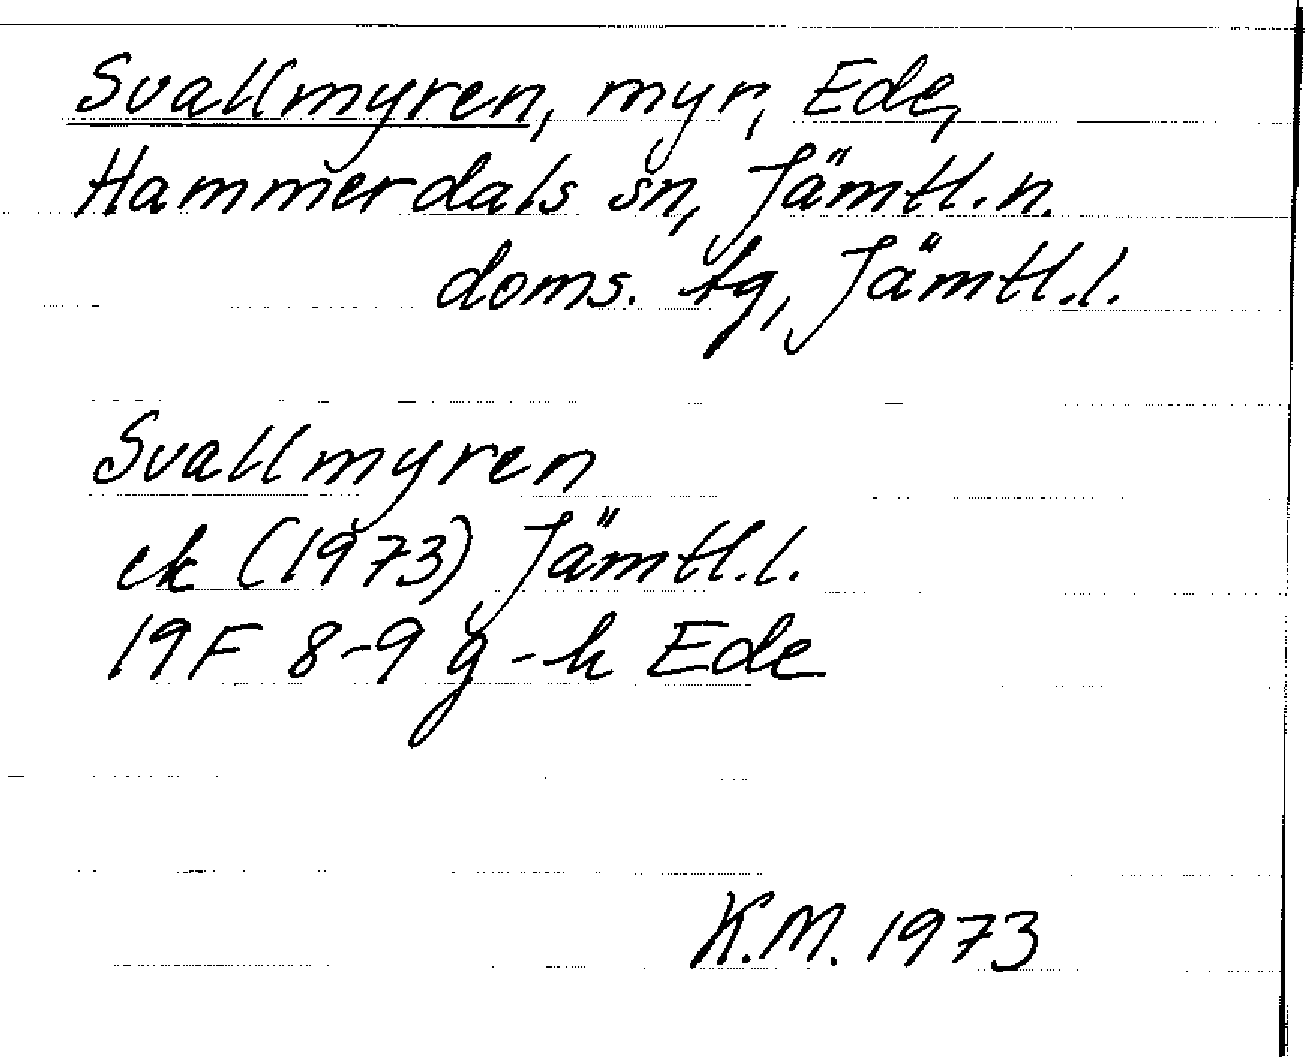 Svallmyren, myr, Ede,
Hammerdals sn, Jämtl. n.
doms. tg, Jämtl. l.
Svallmyren
ek (1973) Jämtl. l.
19F 8-9 g-h Ede
K.M. 1973